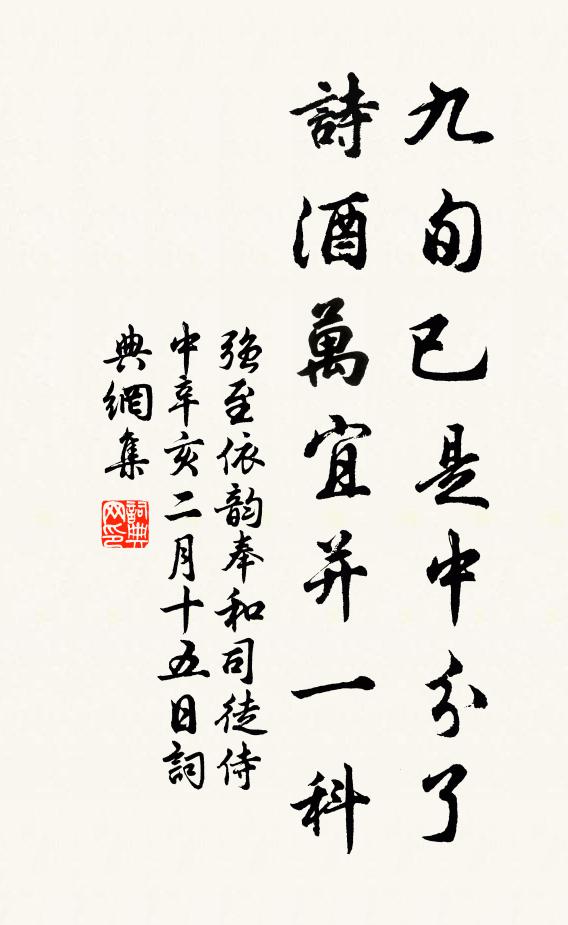 九旬已是中分了
詩酒萬宜并一科
强至依韵奉和司徒侍
中辛亥二月十五日詞
典網集
詞典網印